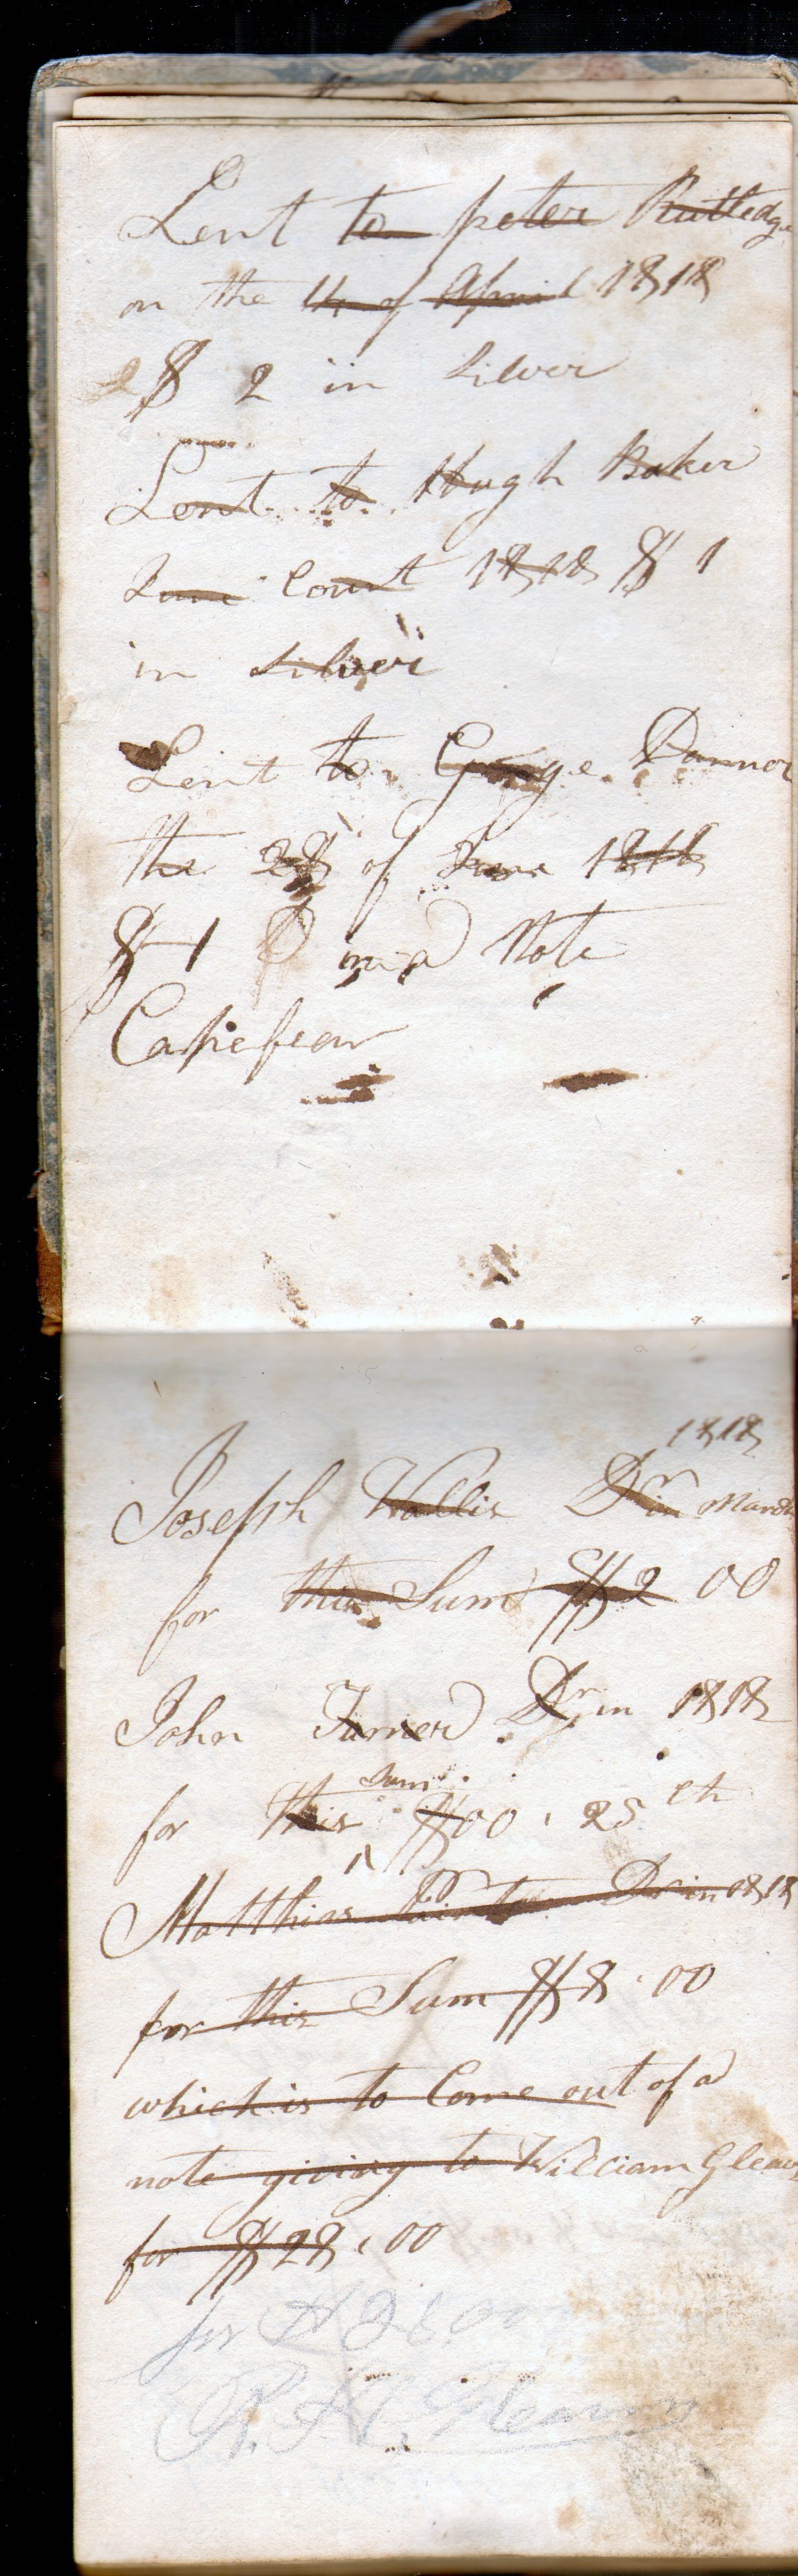 Lent to peter Rutledge
on the 14 of April 1818
$ 2 in Silver
Lent to Hugh Baker
June Court 1818 $ 1
in silver
Lent to George Dannor
the 28 of June 1818
$ 1 in a Note
Capefear
1818
Joseph Wallis Dr in March
for this Sum $ 2 00
John Turner Dr in 1818
for this sum $ 00 . 25 ct
Matthias Dr in 1818
for this Sum $ 8 . 00
which is to Come out of a
note giving to William Gleaves
for $ 28 . 00
for $ 28.00